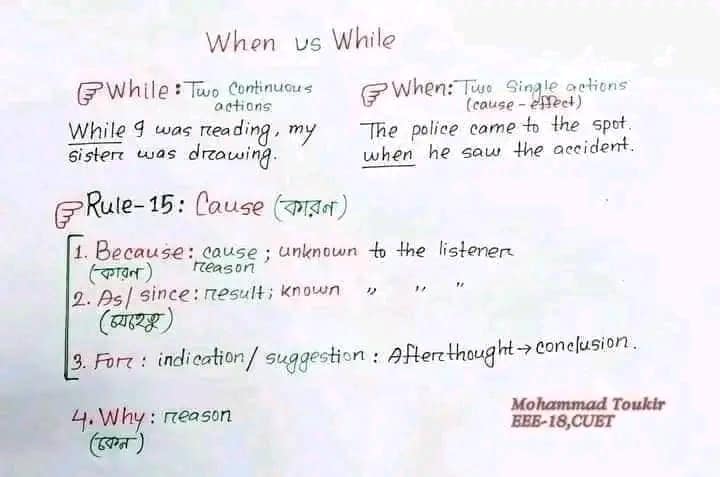 When vs While
While: Two Continuous actions
While I was reading, my sister was drawing.
When: Two Single actions
(cause-effect)
The police came to the spot.
when he saw the accident.
Rule-15: Cause (কারণ)
1. Because: cause; unknown to the listener
(কারণ) reason
2. As/since: result; known " " "
(যেহেতু)
3. For: indication/suggestion: Afterthought→conclusion.
4. Why: reason
(কেন)
Mohammad Toukir
EEE-18,CUET